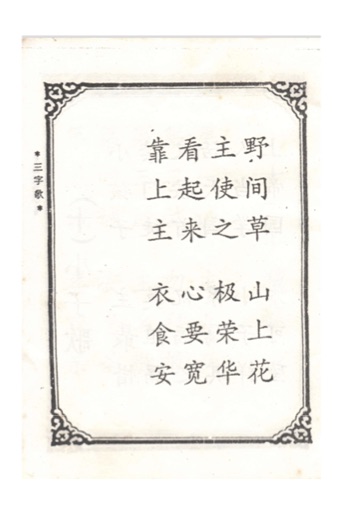 野间草 山上花
主使之 极荣华
看起来 心要宽
靠上主 衣食安
*三字歌*